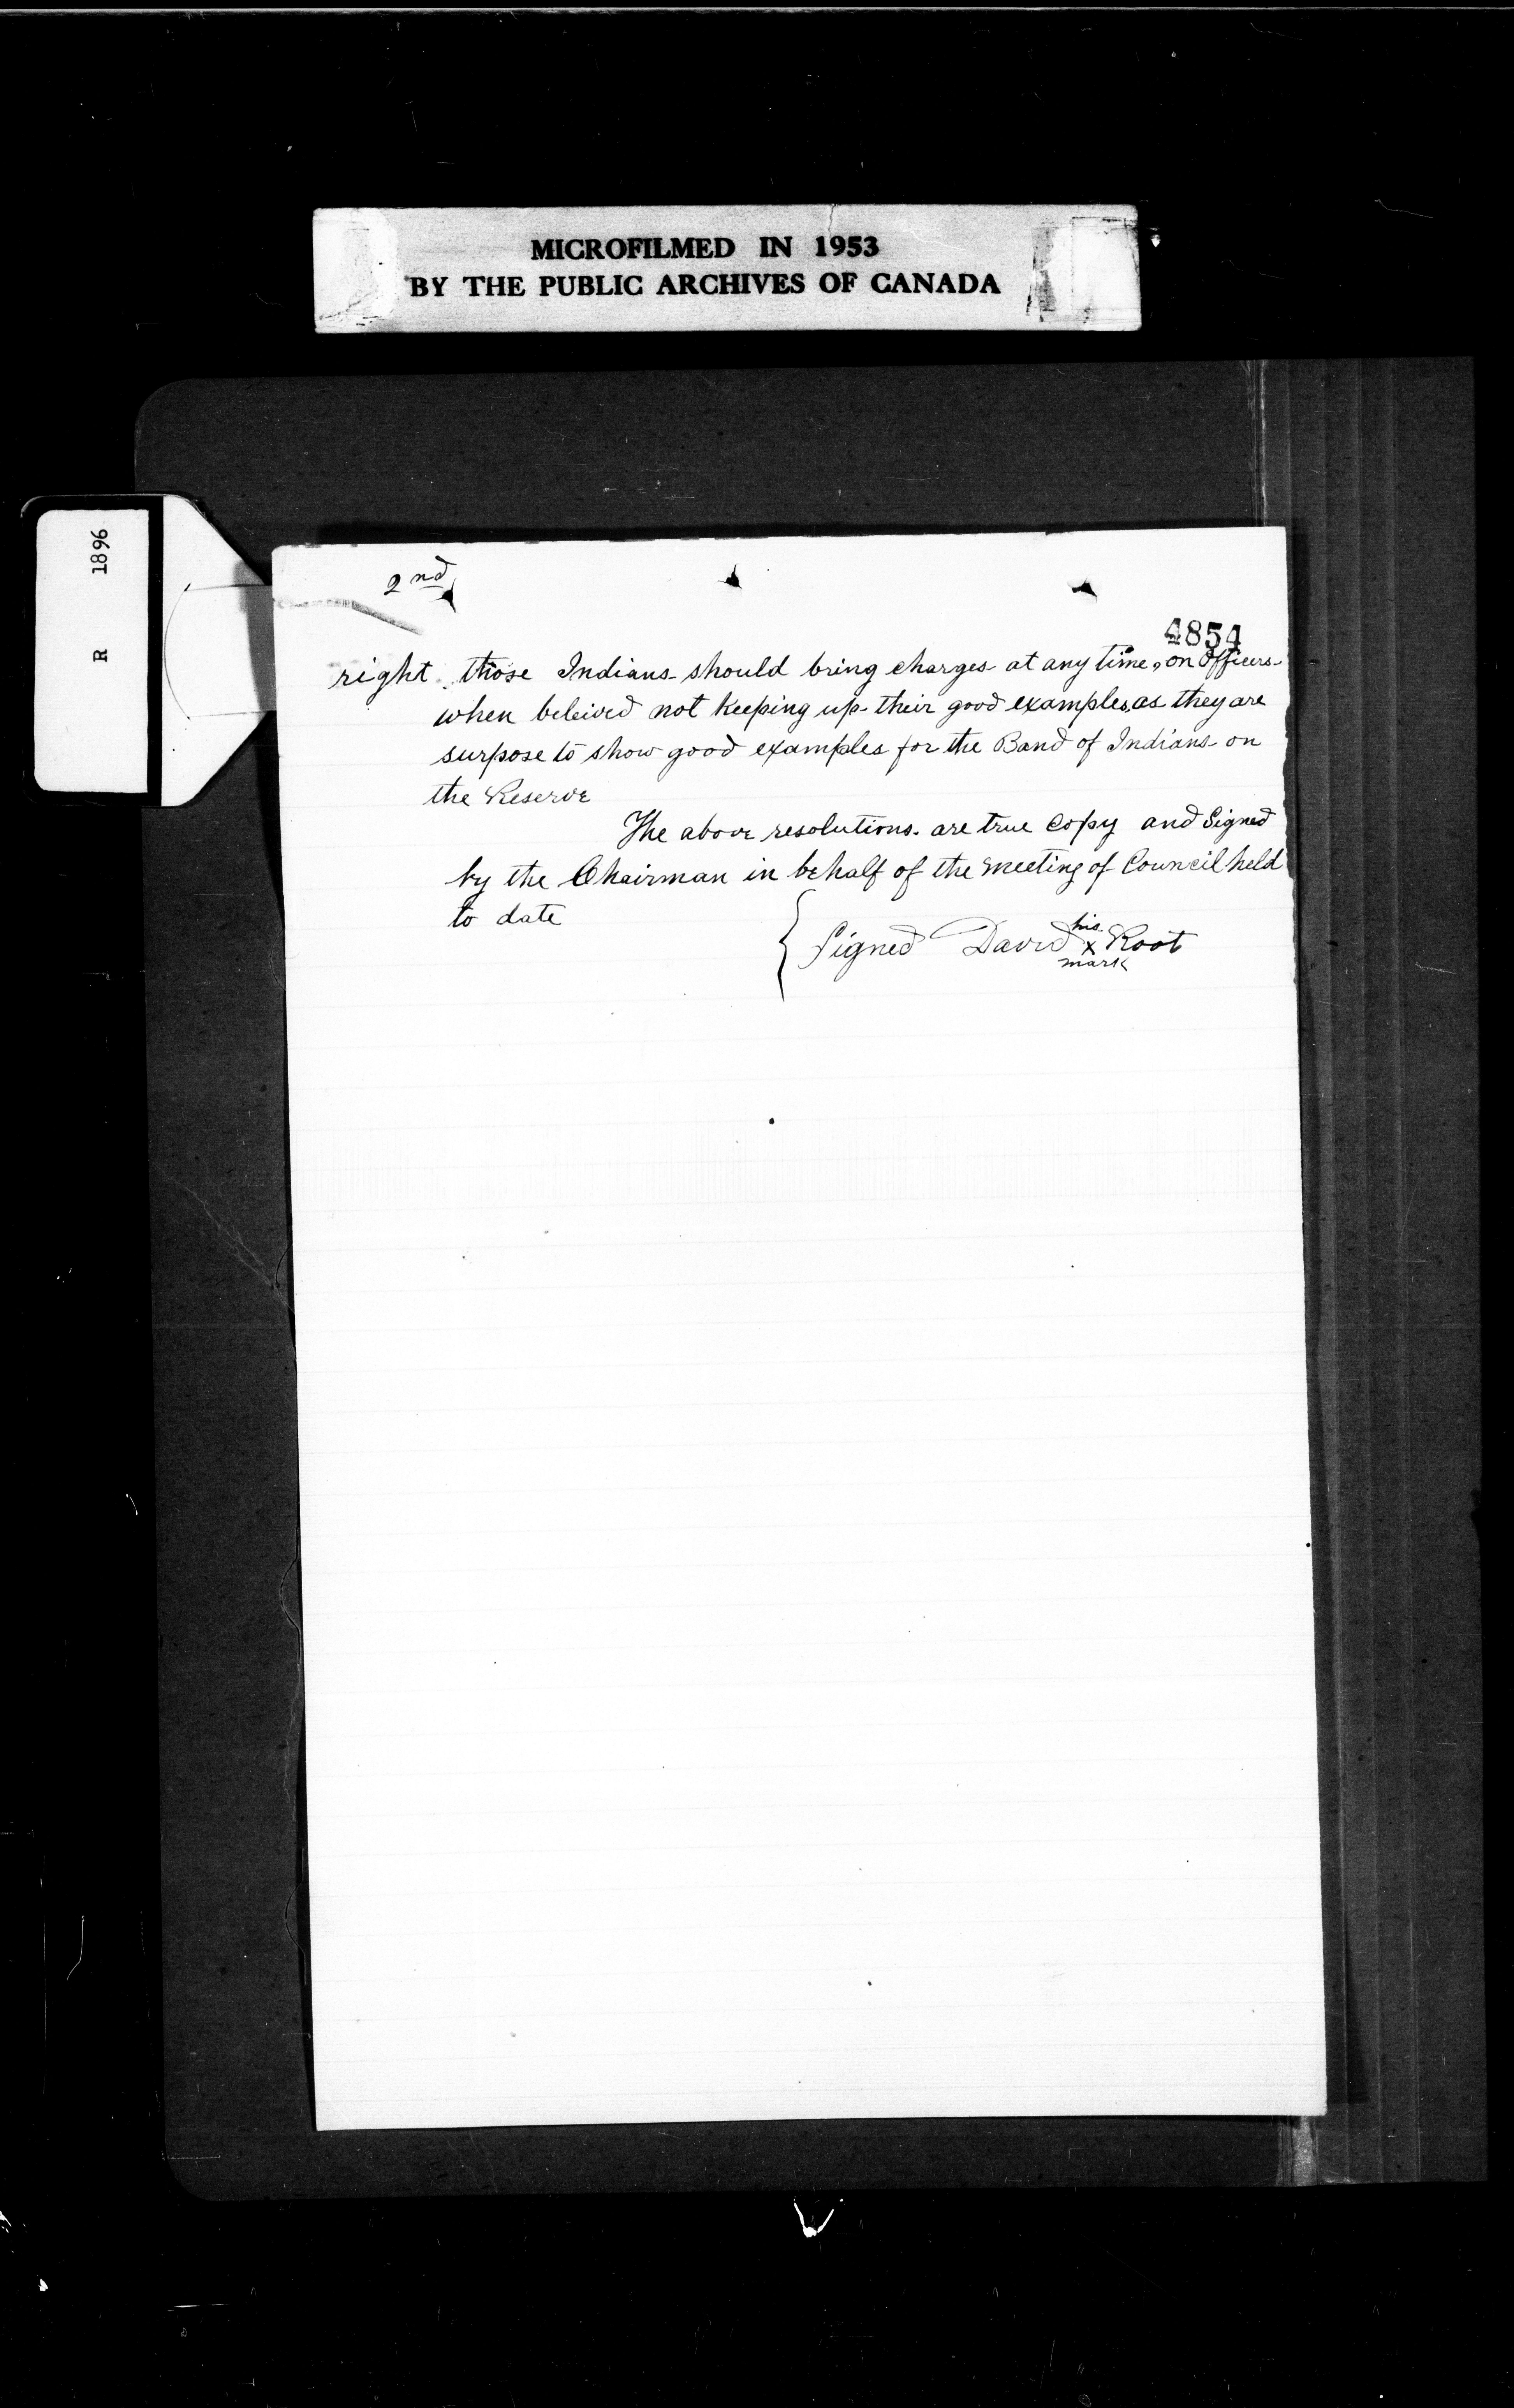 MICROFILMED IN 1953
BY THE PUBLIC ARCHIVES OF CANADA
R 1896
2nd
4854
right those Indians should bring charges at any time, on Officers
when beleived not keeping up their good examples, as they are
surpose to show good examples for the Band of Indians on
the Reserve
The above resolutions are true Copy and Signed
by the Chairman in behalf of the meeting of Council held
to date
Signed David his x mark Root